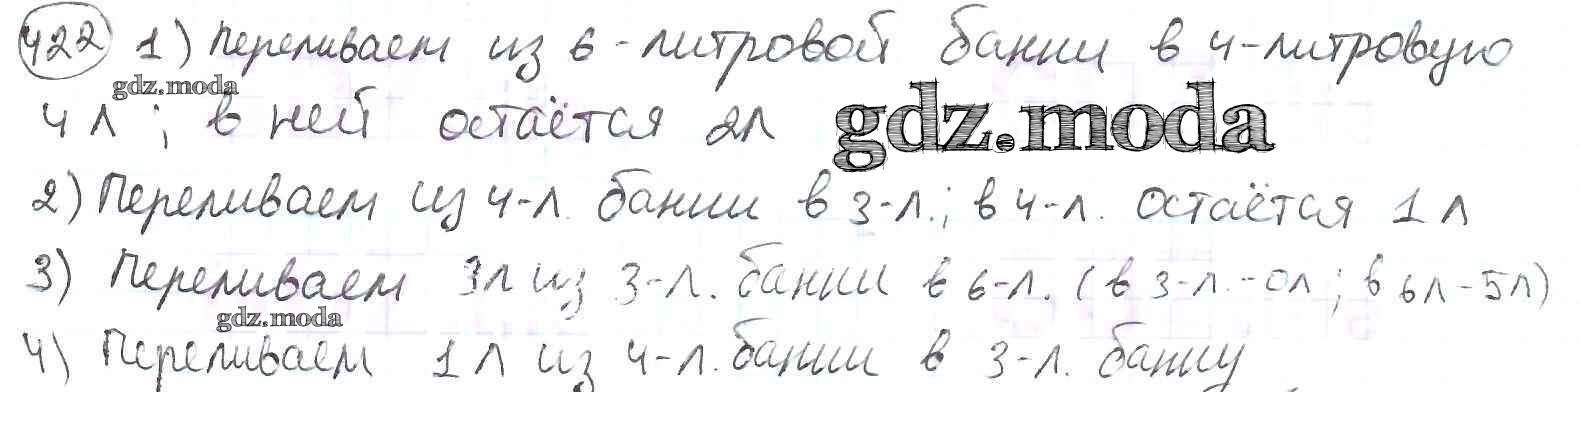 422 1) Переливаем из 6-литровой банки в 4-литровую
gdz.moda
4 л; в ней остаётся 2л gdz.moda
2) Переливаем из 4-л. банки в 3-л.; в 4-л. остаётся 1 л
3) Переливаем 3л из 3-л. банки в 6-л. (в 3-л.-0л; в 6л-5л)
gdz.moda
4) Переливаем 1 л из 4-л. банки в 3-л. банку